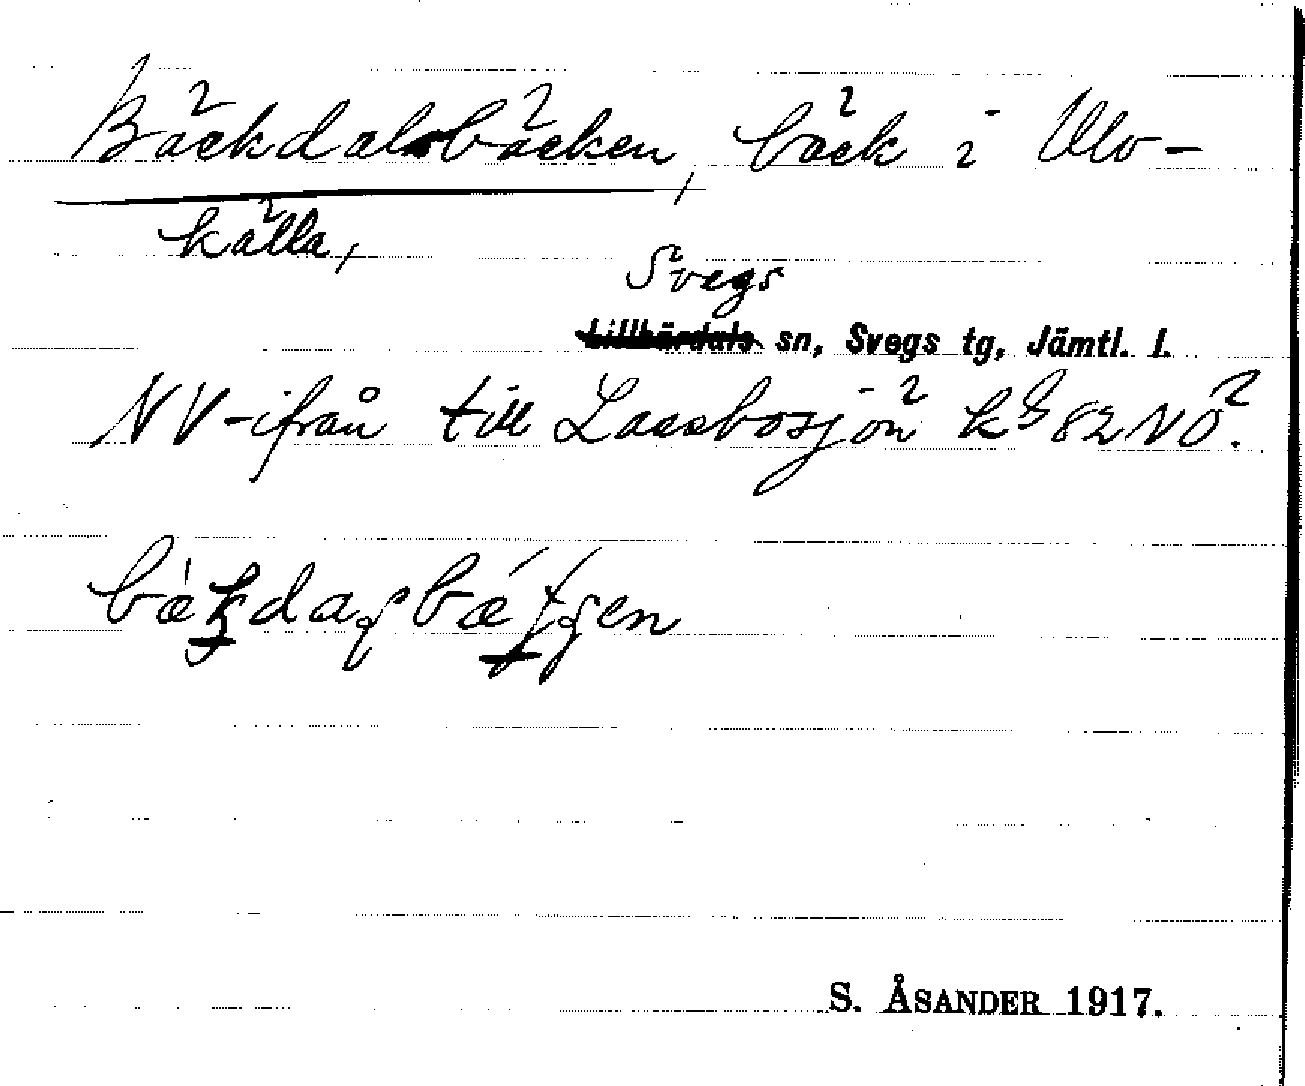 Bäckdalsbäcken, bäck i Ulv-
källa,
Svegs
Lillhärdals sn, Svegs tg, Jämtl. l.
NV-ifrån till Lassbosjön kg 82 NÖ.
S. ÅSANDER 1917.